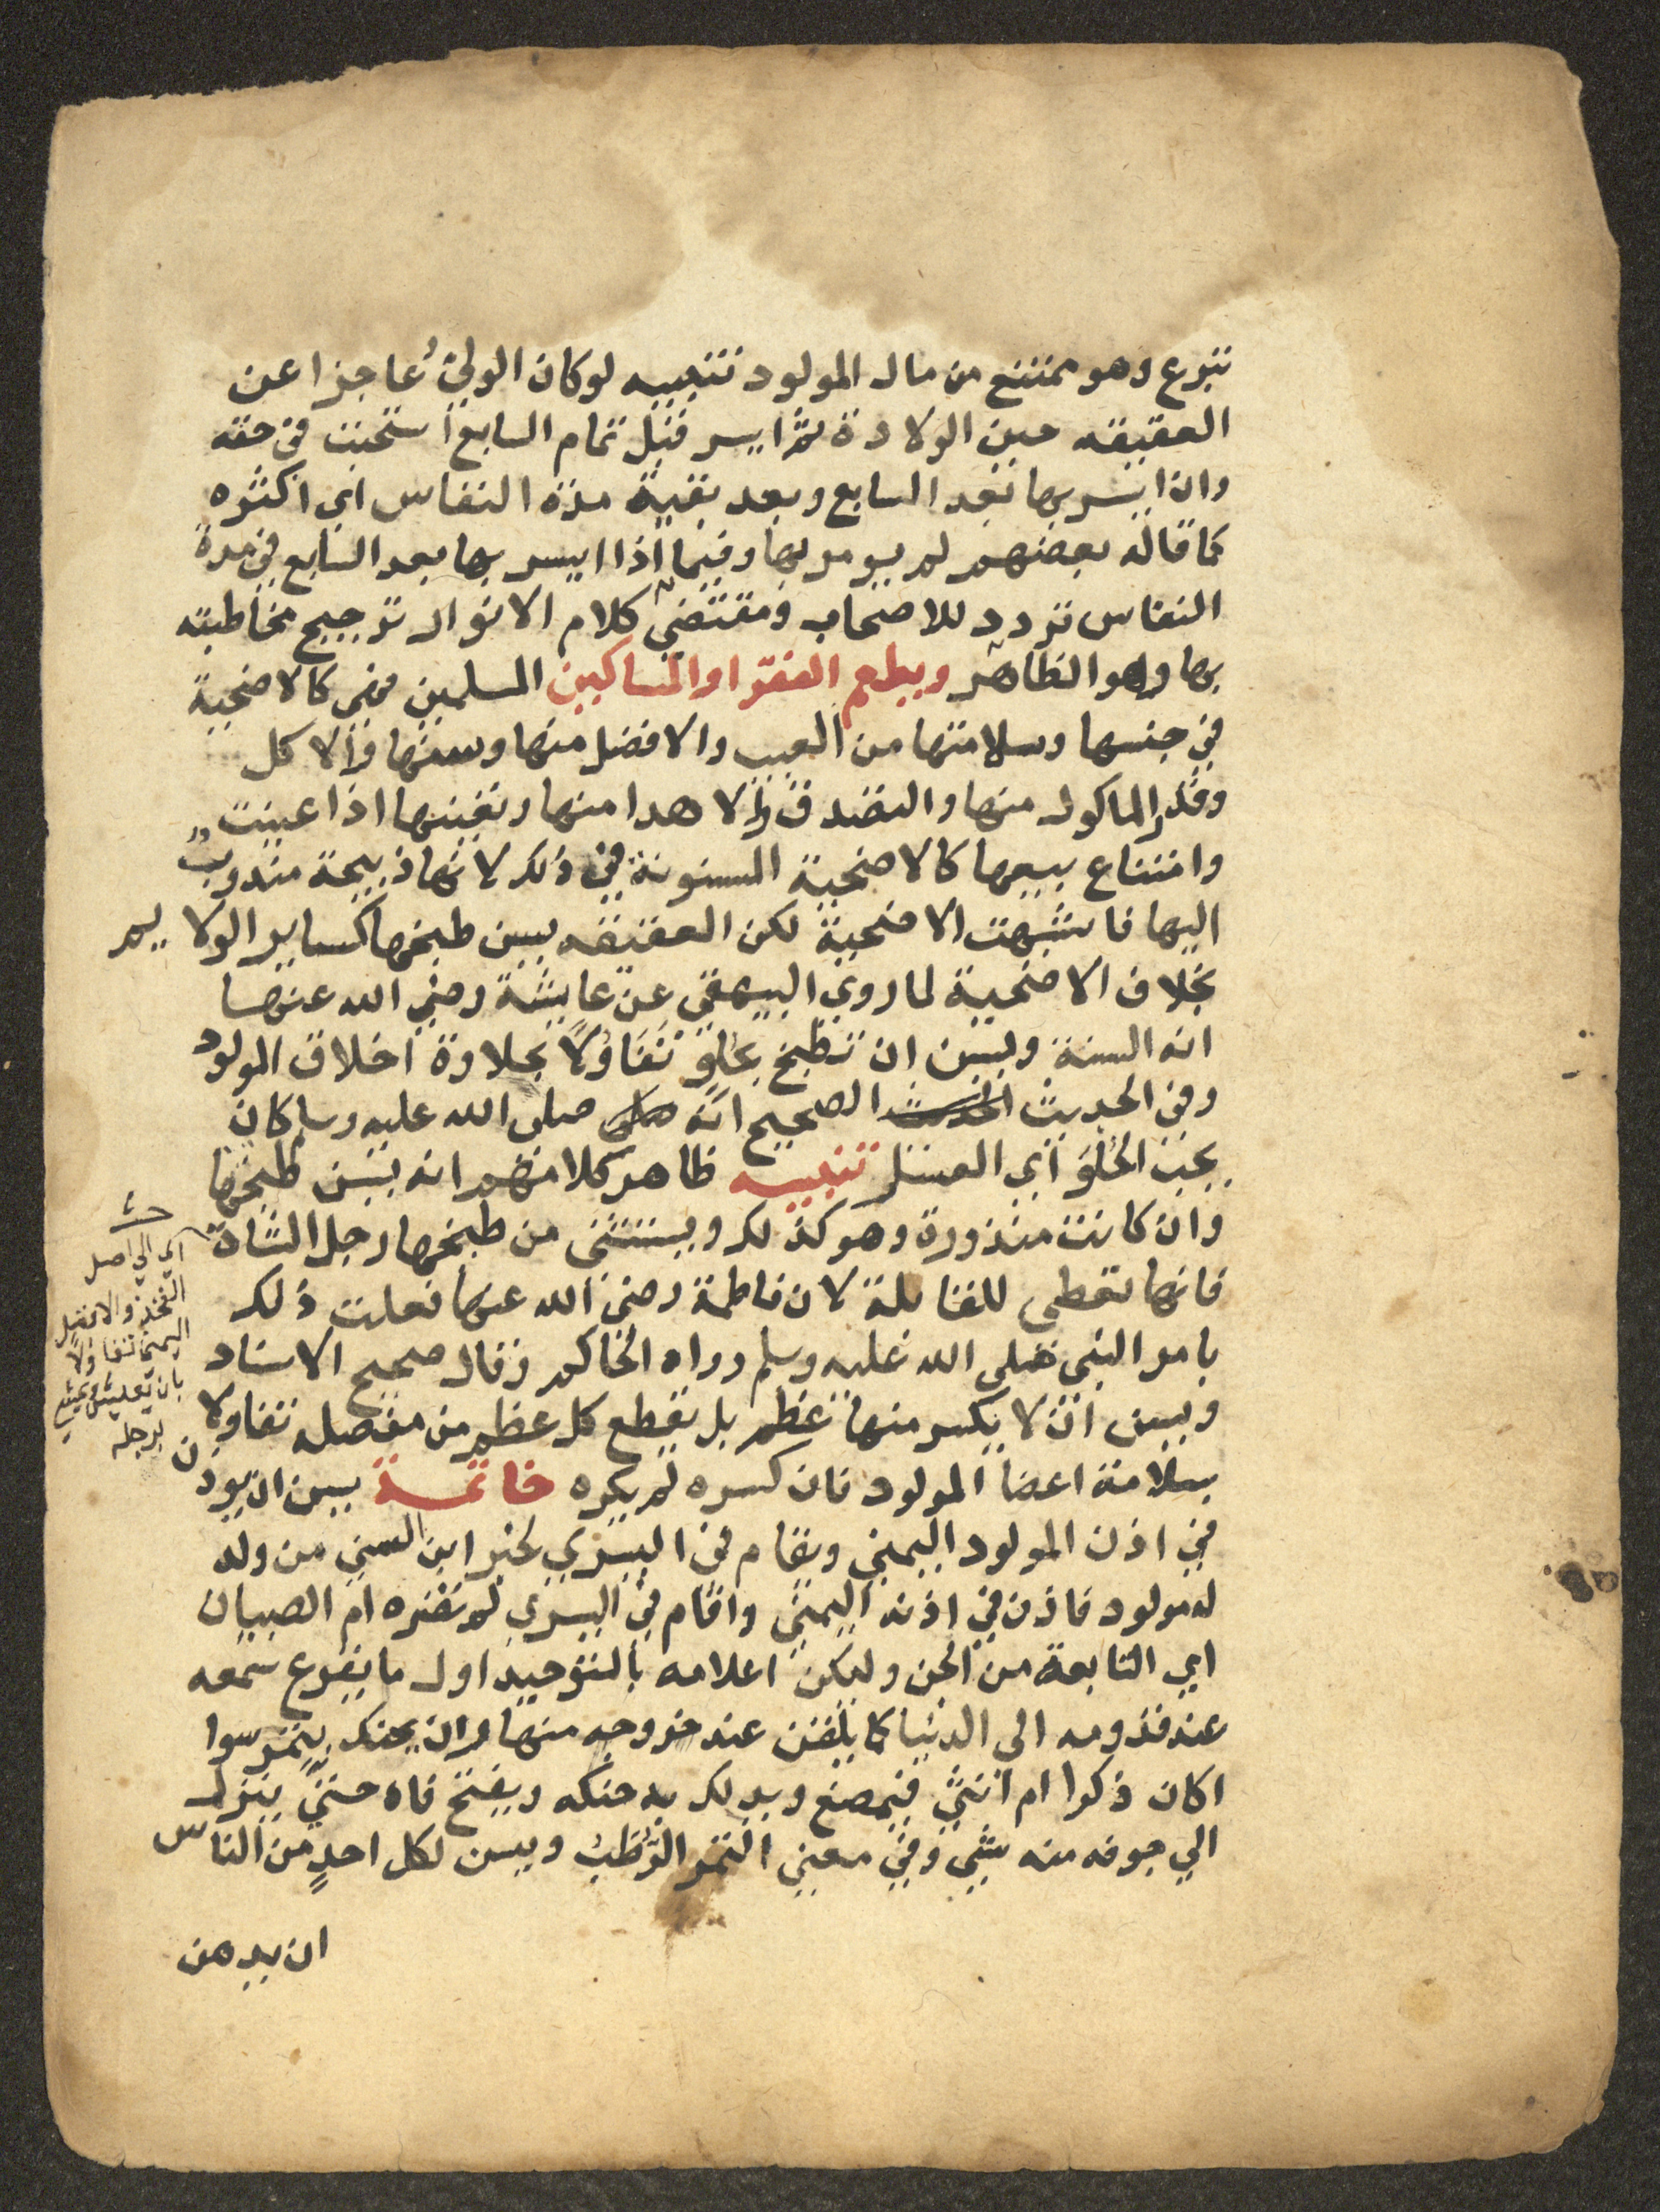 تبرع وهو ممتنع من مال المولود تنبيه لو كان الولي عاجزا عن
العقيقه حين الولادة ثم ايسر قبل تمام السابع استحبت في حقه
وان ايسر بها بعد السابع وبعد بقية مدة النفاس اي اكثره
كما قاله بعضهم لم يومر بها وفيما اذا ايسر بها بعد السابع في مدة
النفاس تردد للاصحاب ومقتضي كلام الانوار ترجيح مخاطبته
بها وهو الظاهر ويطعم الفقرا والمساكين المسلمين فهي كالاضحية
في جنسها وسلامتها من العيب والافضل منها وسنها والاكل
وقدر الماكول منها والتصدق والاهدا منها وتعينها اذا عينت
وامتناع بيعها كالاضحية المسنونة في ذلك لانها ذبيحة مندوب
اليها فاشبهت الاضحية لكن العقيقه يسن طبخها كساير الولايم
بخلاف الاضحية لما روي البيهقي عن عايشة رضي الله عنها
انه السنة ويسن ان تطبخ بحلو تفاولا بحلاوة اخلاق المولود
وفي الحديث الصحيح انه صلى الله عليه وسلم كان
يحب الحلو اي العسل تنبيه ظاهر كلامهم انه يسن طبخها
وان كانت منذورة وهو كذلك ويستثنى من طبخها رجل الشاة
فانها تعطى للقابلة لان فاطمة رضي الله عنها فعلت ذلك
بامر النبي صلى الله عليه وسلم رواه الحاكم وقال صحيح الاسناد
ويسن ان لا يكسر منها عظم بل يقطع كل عظم من مفصله تفاولا
بسلامة اعضا المولود فان كسره لم يكره خاتمة يسن ان يوذن
في اذن المولود اليمني ويقام في اليسري لخبر ابن السني من ولد
له مولود فاذن في اذنه اليمني واقام في اليسري لم تضره ام الصبيان
اي التابعة من الجن وليكن اعلامه بالتوحيد اول ما يقرع سمعه
عند قدومه الي الدنيا كما يلقن عند خروجه منها وان يحنك بتمر سوا
اكان ذكرا ام انثي فيمضغ ويدلك به حنكه ويفتح فاه حتي ينزل
الي جوفه منه شي وفي معني التمر الرُّطَبُ ويسن لكل احدٍ من الناس
ان يدهن
اي الي اصل
الفخذ والافضل
اليمنى تفاولا
بان يعيش ويمشي
برجله